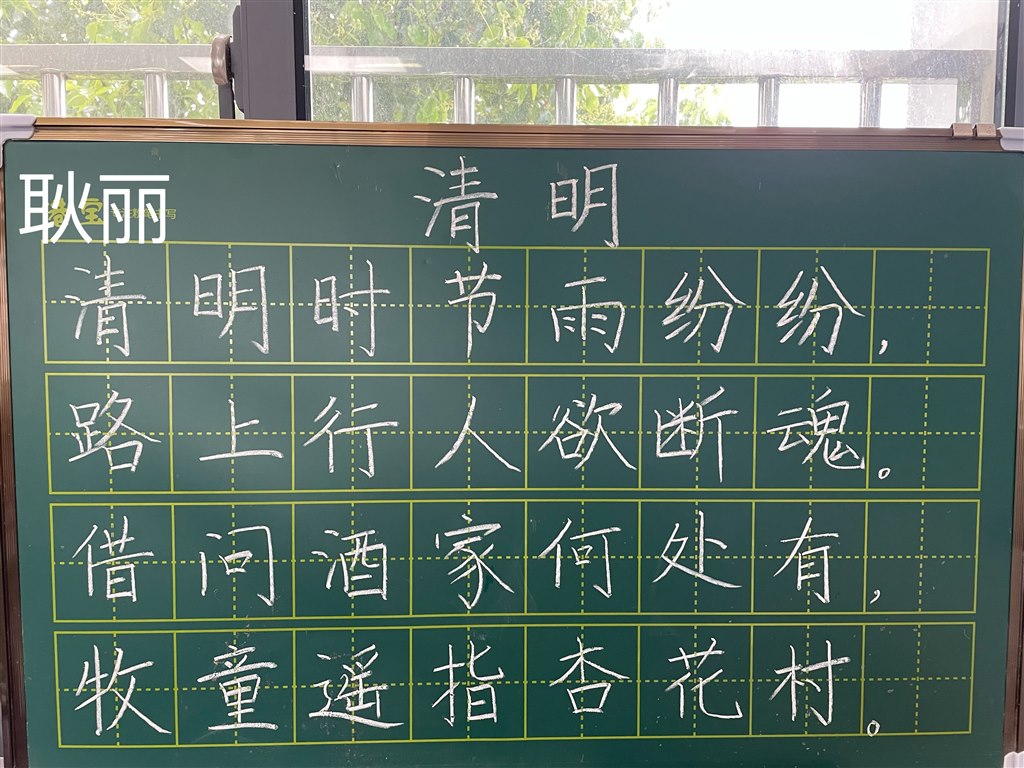 清明
耿丽
清明时节雨纷纷，
路上行人欲断魂。
借问酒家何处有，
牧童遥指杏花村。